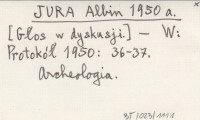 JURA Albin 1950 a.
[Głos w dyskusji.] — W:
Protokół 1950: 36-37.
Archeologia.
BJ/023/1111